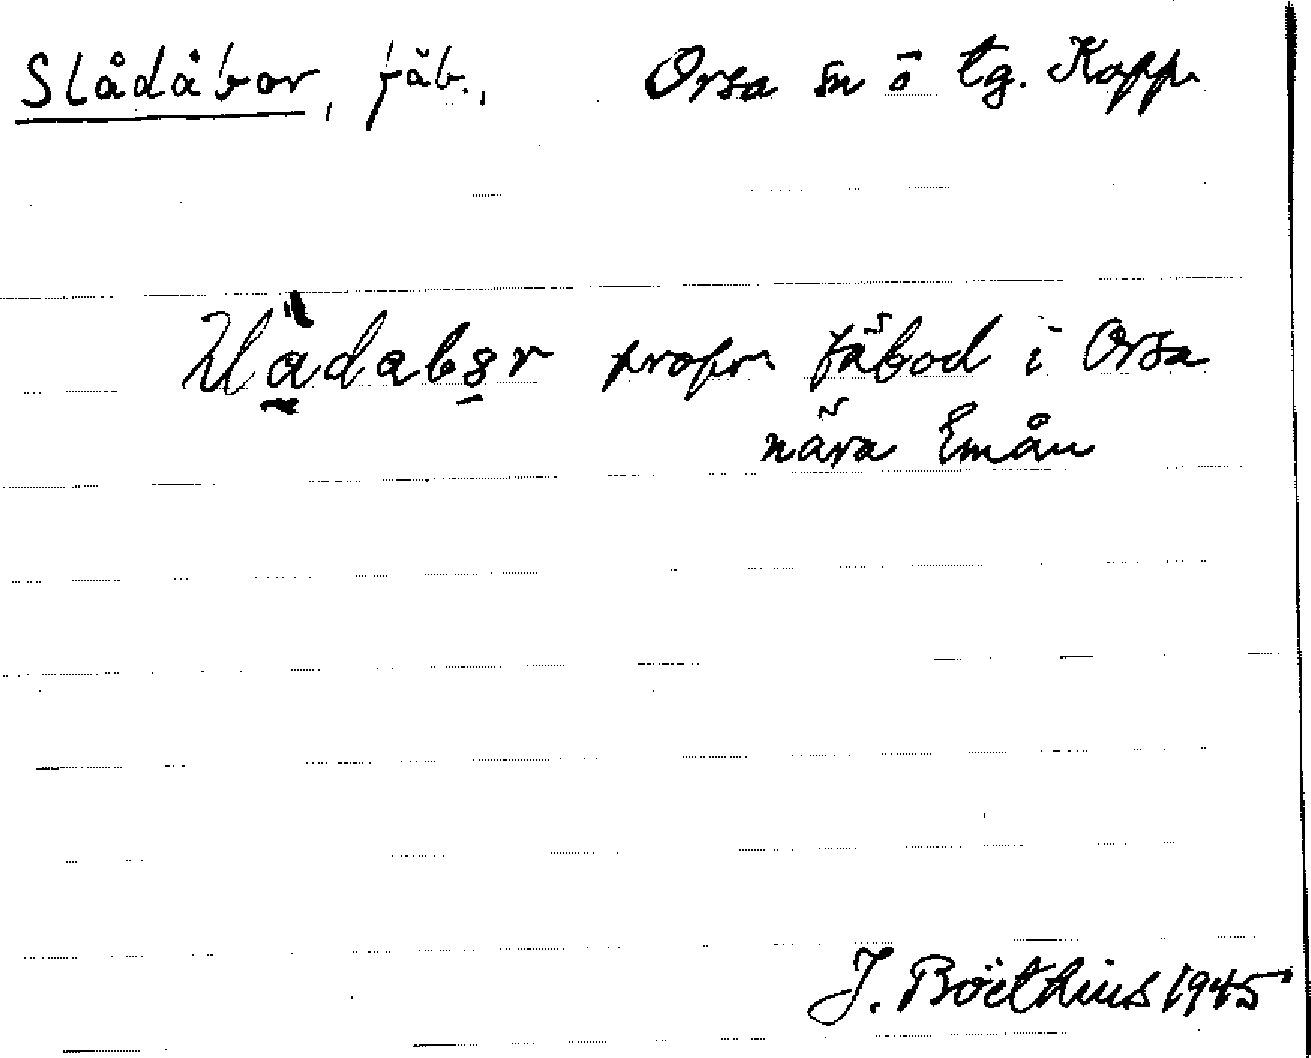 Slådåbor, fäb., Orsa sn ö tg. Kopp.
fäbod i Orsa
nära Emån
J. Boëthius 1945